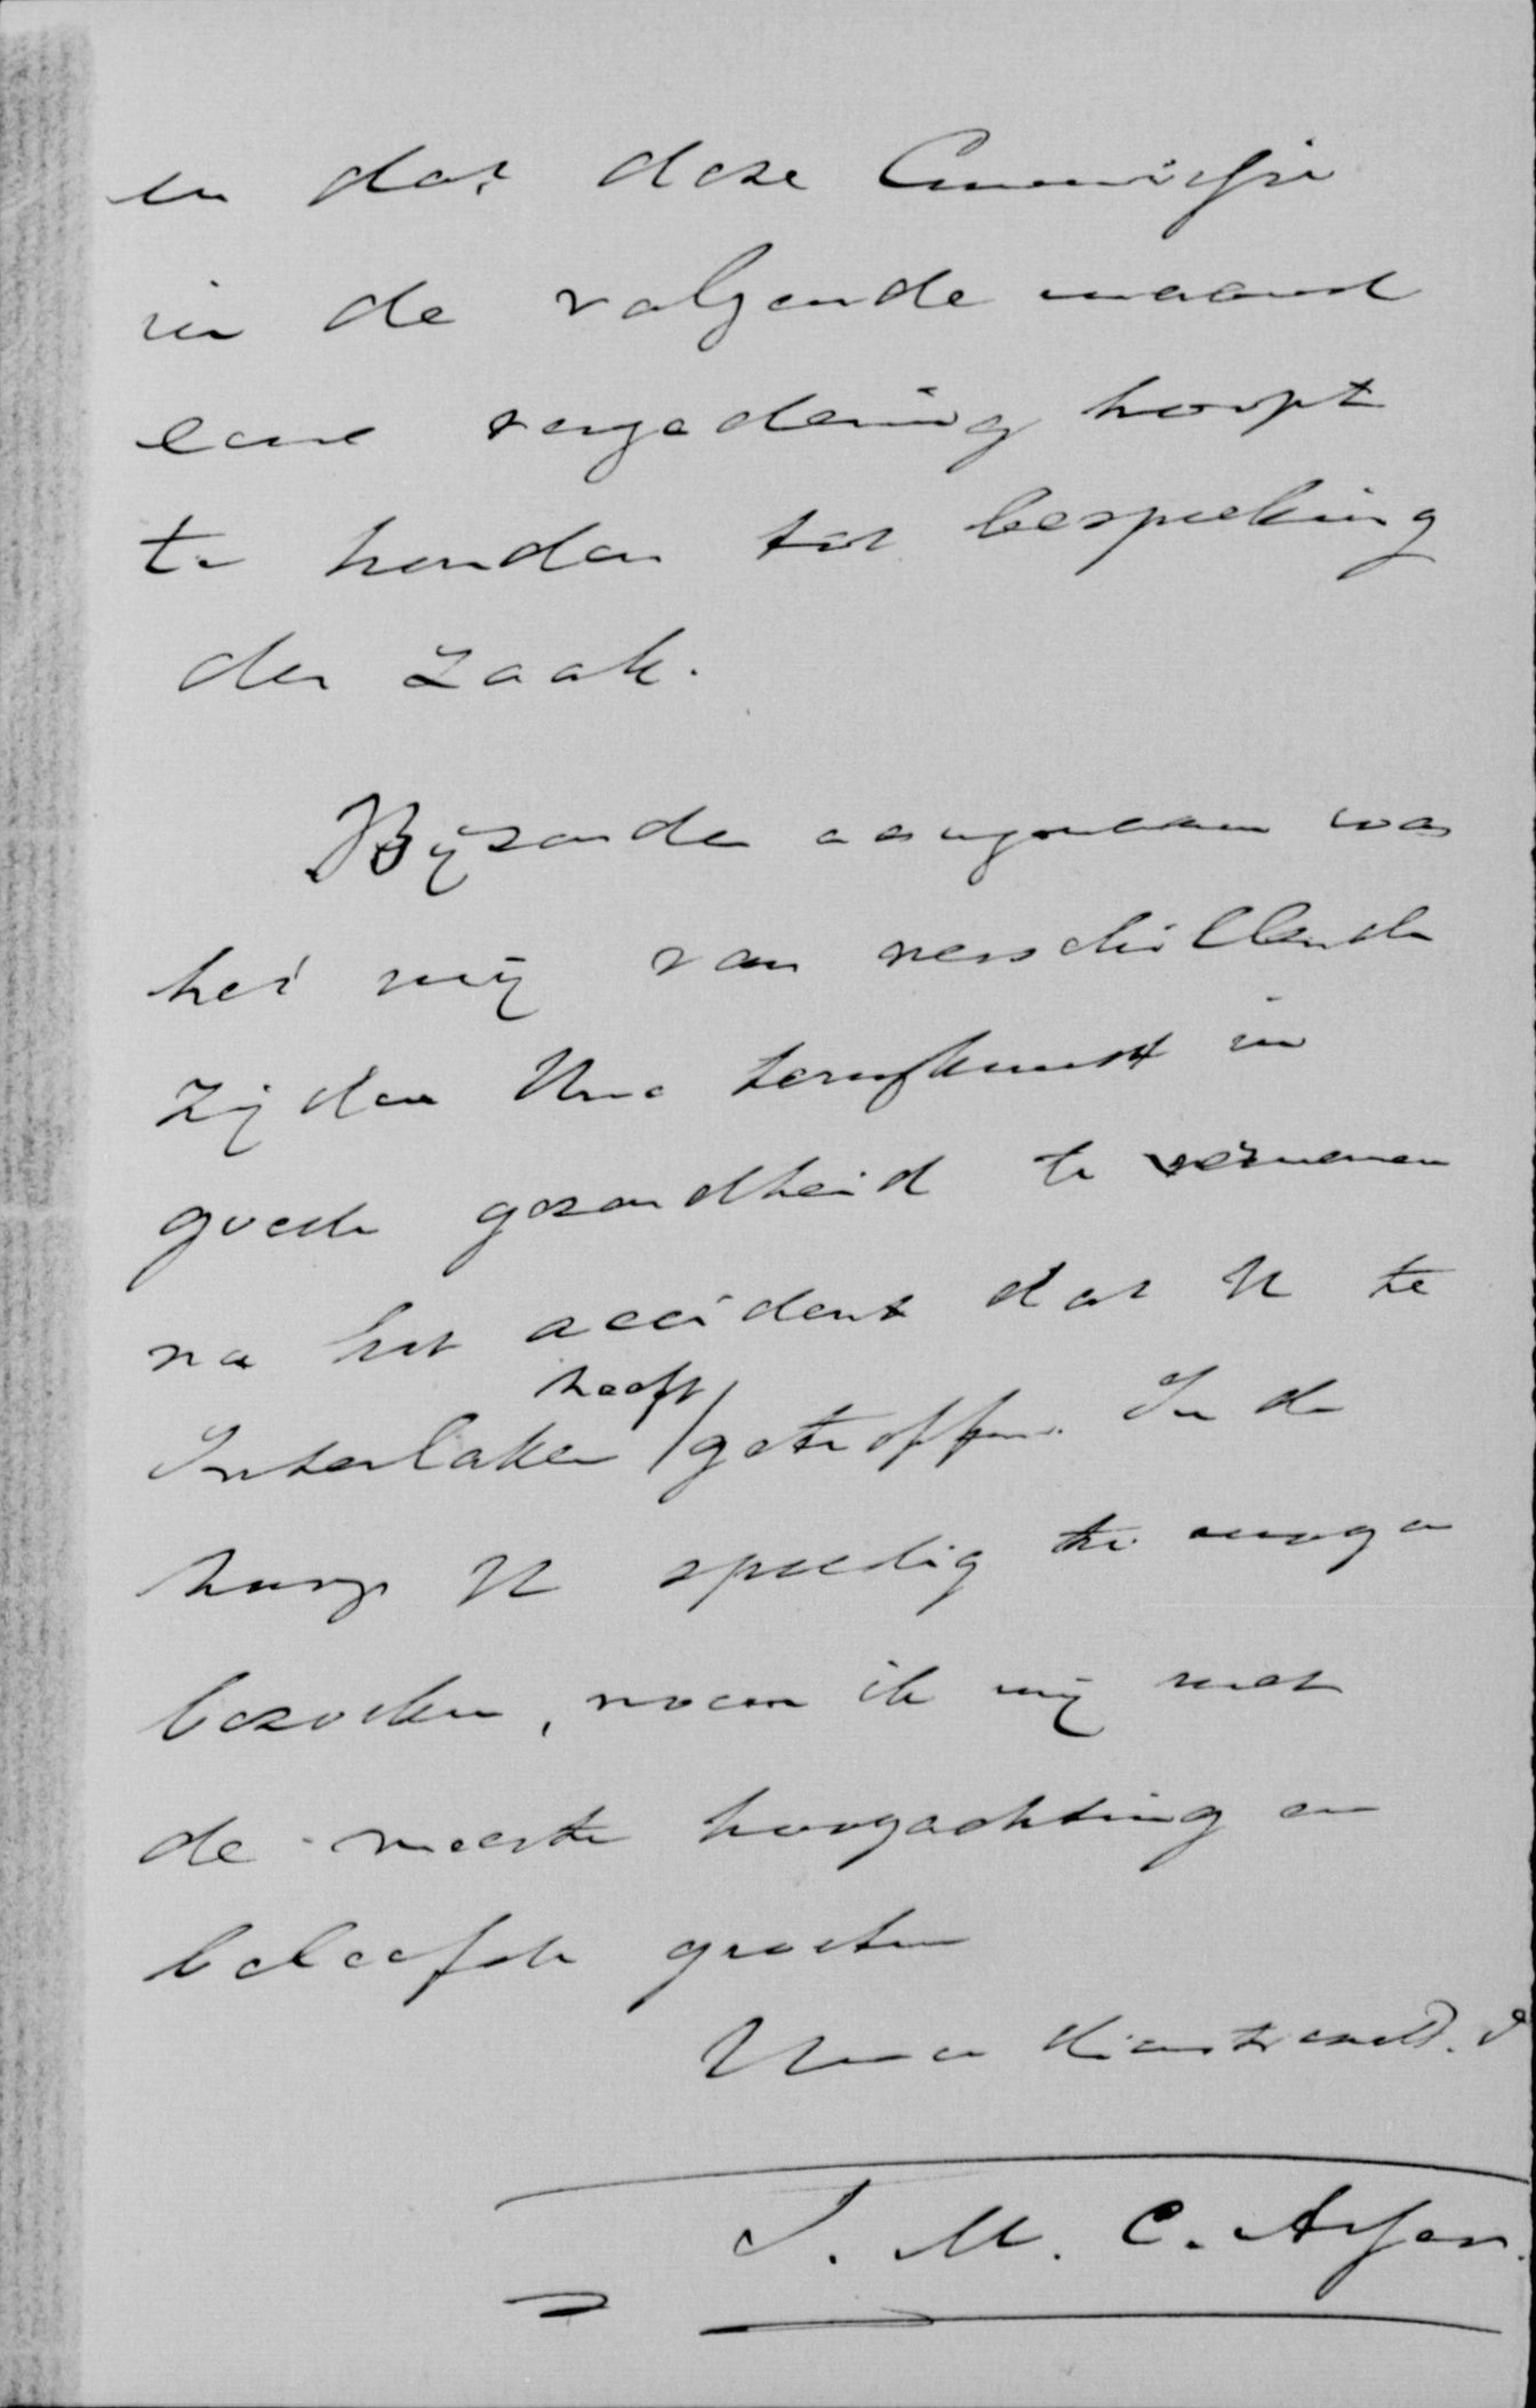 en dat deze Commissie
in de volgende maand
eene vergadering hoopt
te houden tot bespreking
der zaak.
Bijzonder aangenaam was
het mij van verschillende
zijden Uwe terugkomst in
goede gezondheid te vernemen
na het accident dat U te
heeft
Interlaken / getroffen. In de
hoop U spoedig te mogen
bezoeken, noem ik mij met
de meeste hoogachting en
beleefde groeten
Uwe dienstwill. d
J. M. C. Asser.